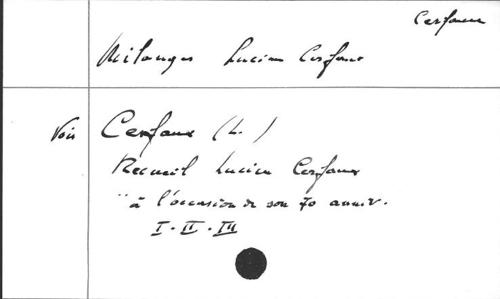 Cerfaux
Mélanges Lucien Cerfaux
Voir Cerfaux (L.)
Recueil Lucien Cerfaux
" à l'occasion de son 70 anniv.
I - II - III